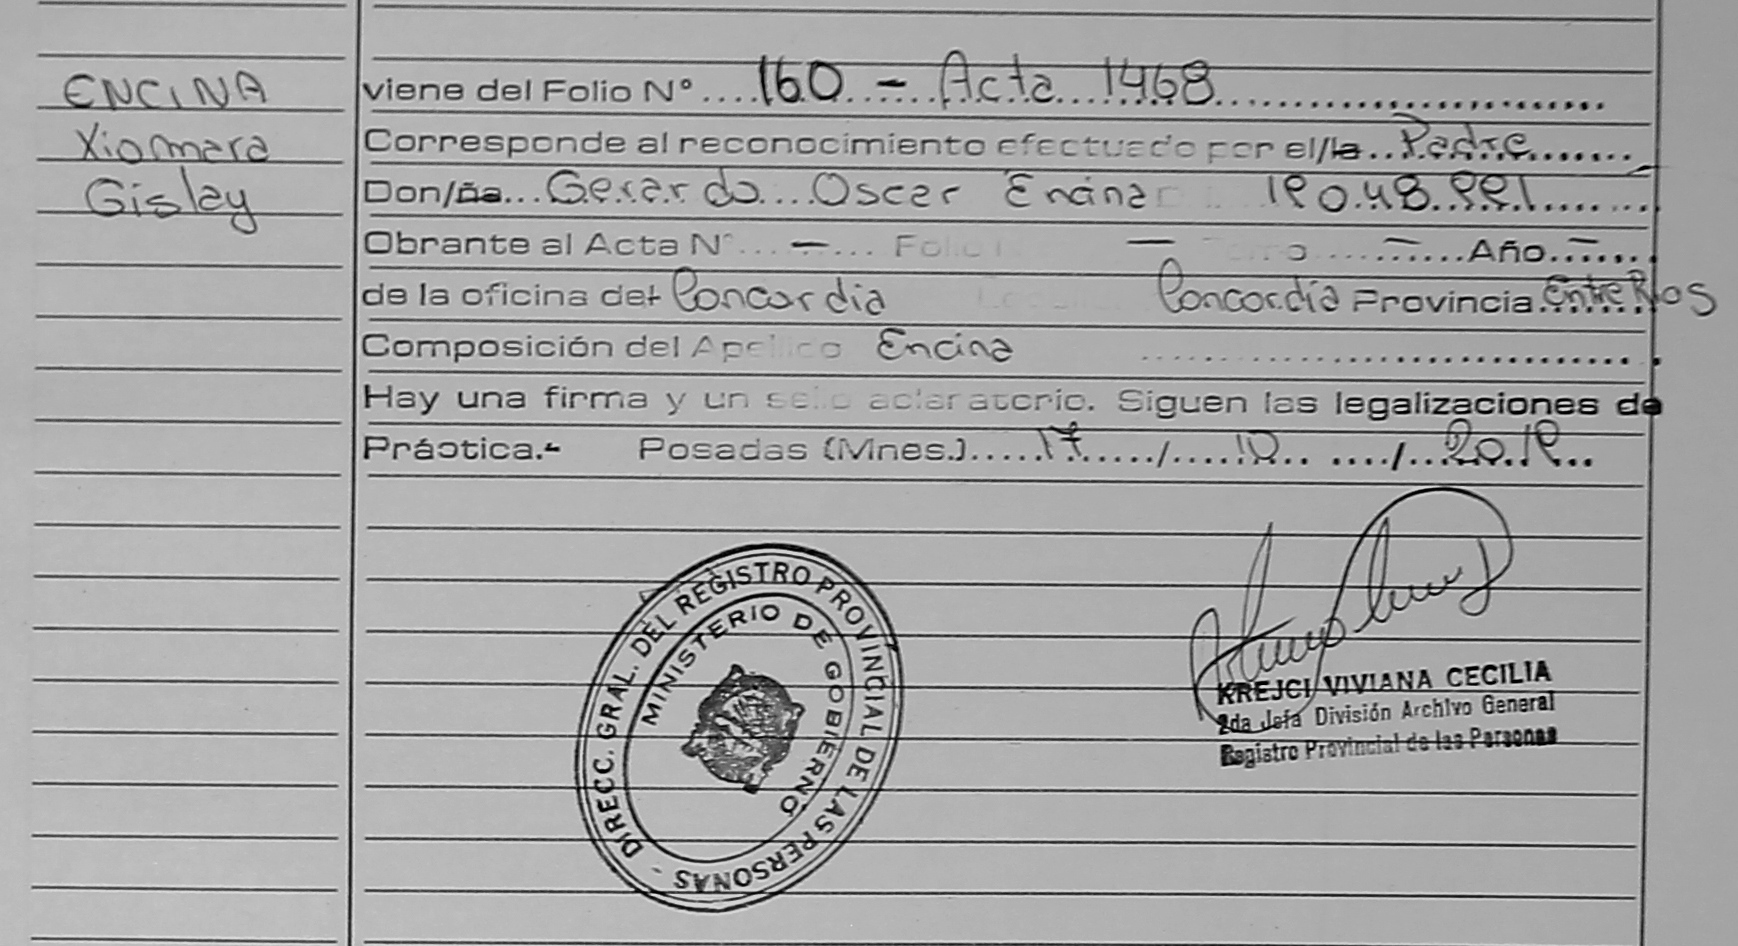 ENCINA
Xiomara
Gislay
viene del Folio N° ....160 - Acta 1468..........
Corresponde al reconocimiento efectuado por el/la.. Padre.......
Don/ña... Gerardo.... Oscar Encina 19.048.991.......
Obrante al Acta N° ... — ... Folio — Tomo ...... — ...Año... — ......
de la oficina del Concordia Concordia Provincia. Entre Ríos
Composición del Apellido Encina ..............................
Hay una firma y un sello aclaratorio. Siguen las legalizaciones de
Práctica.- Posadas (Mnes.).....17...../....10... ..../...2019...
DIRECC. GRAL. DEL REGISTRO PROVINCIAL DE LAS PERSONAS -
MINISTERIO DE GOBIERNO
KREJCI VIVIANA CECILIA
2da Jefa División Archivo General
Registro Provincial de las Personas